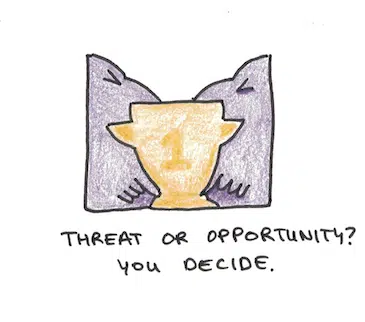 1
THREAT OR OPPORTUNITY?
YOU DECIDE.